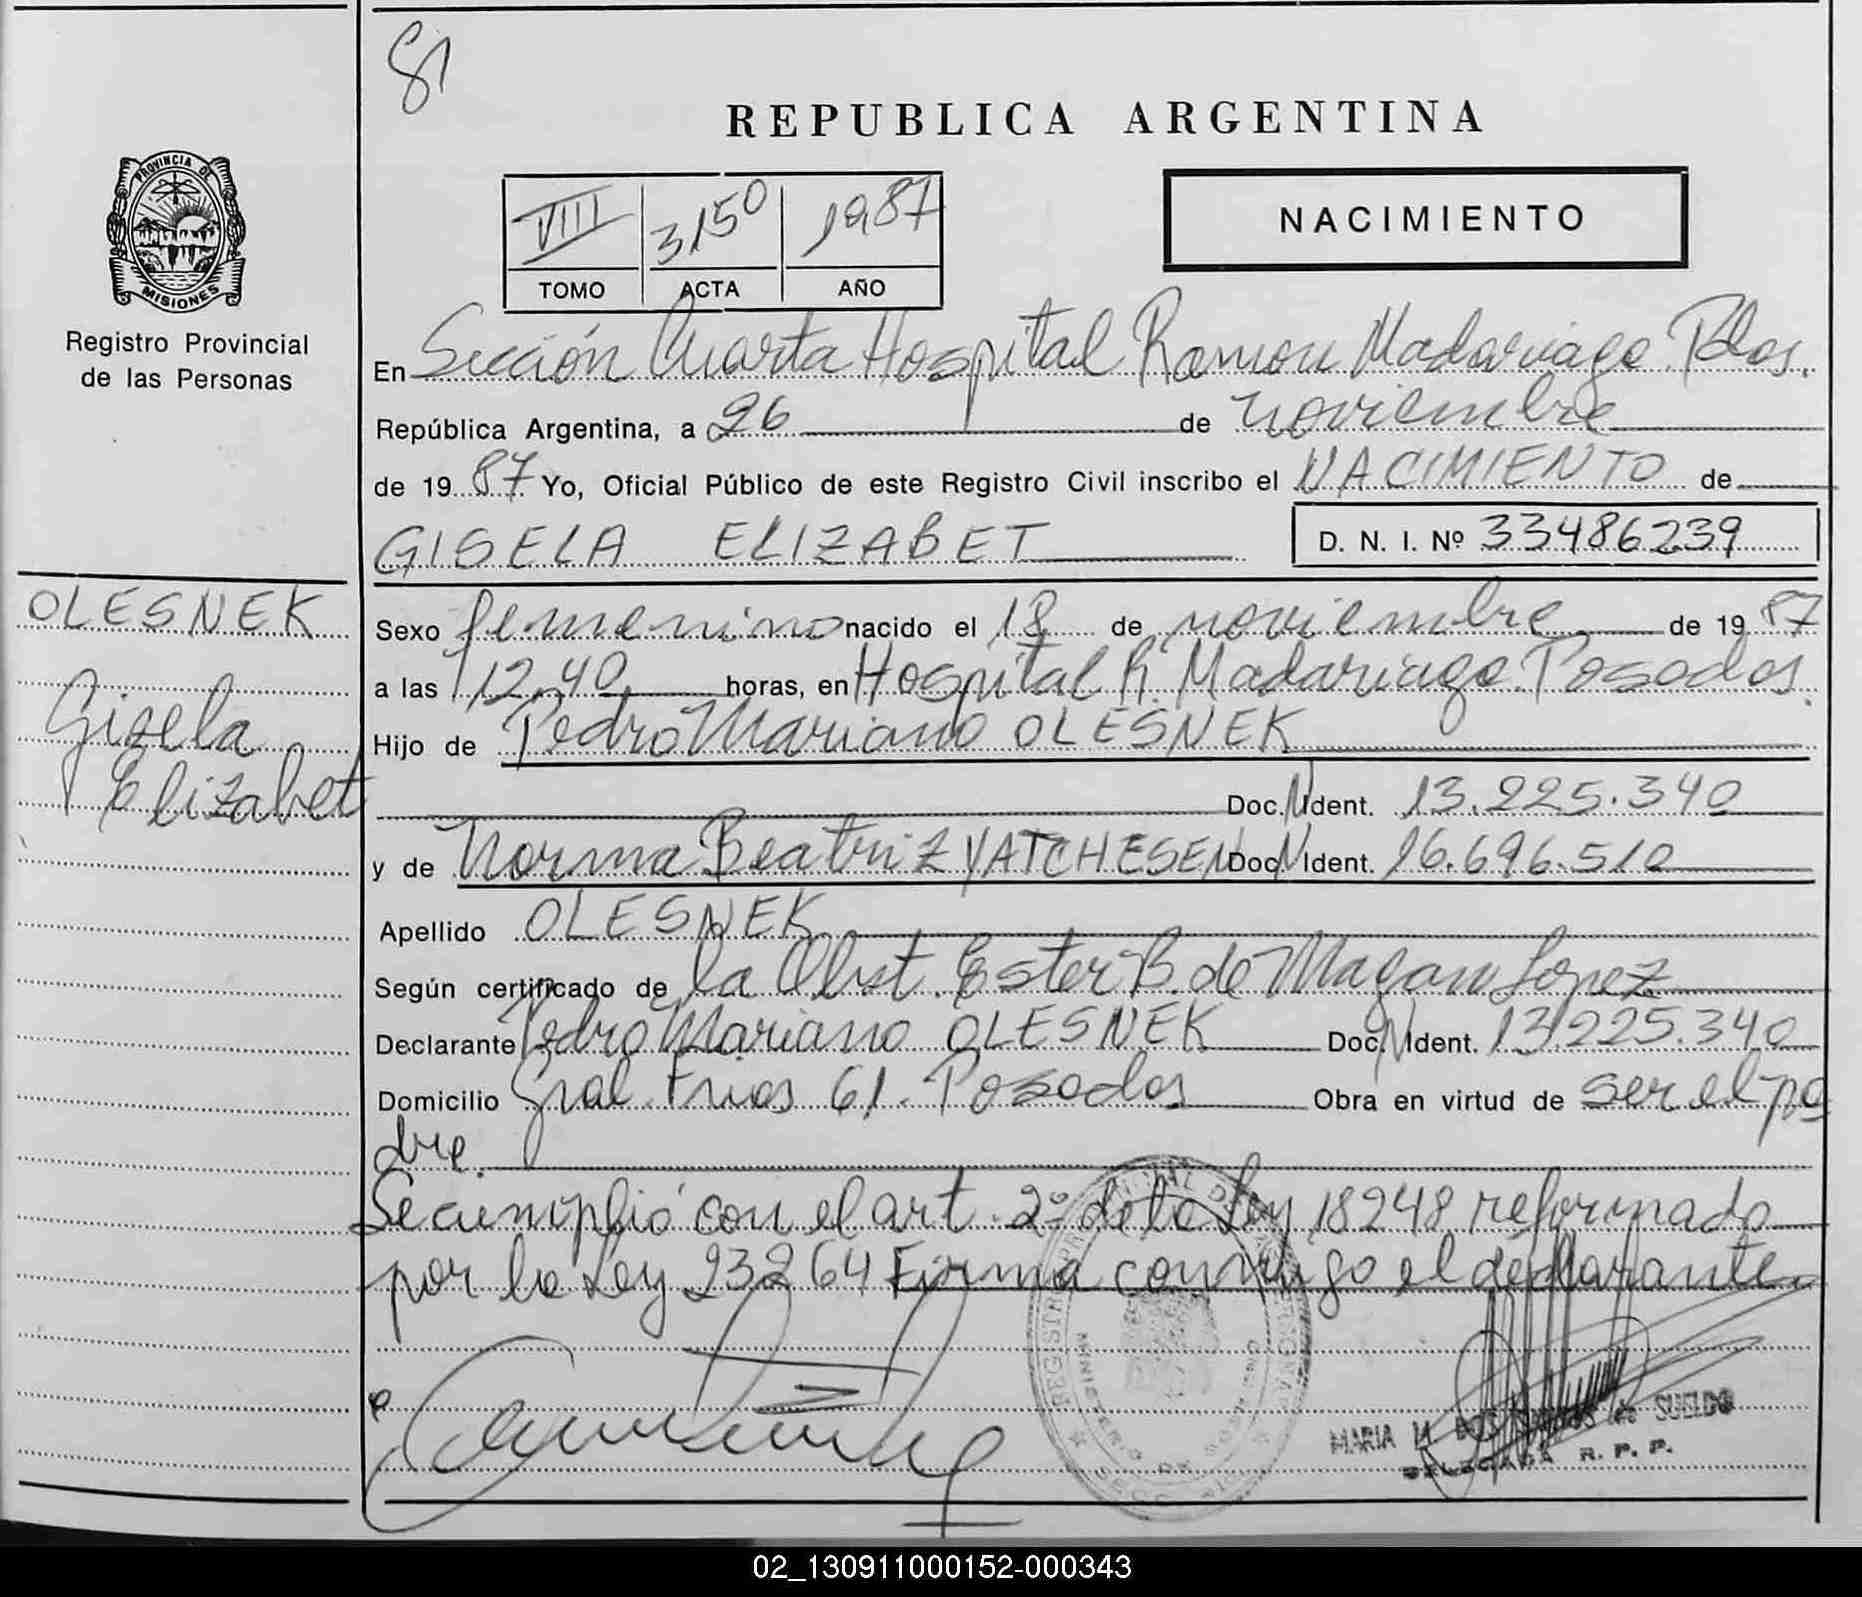 81
REPUBLICA ARGENTINA
PROVINCIA DE
MISIONES
Registro Provincial
de las Personas
VIII 3150 1987
TOMO ACTA AÑO
NACIMIENTO
En Sección Cuarta Hospital Ramon Madariaga. Pdas.
República Argentina, a 26 de noviembre
de 1987 Yo, Oficial Público de este Registro Civil inscribo el NACIMIENTO de
GISELA ELIZABET
D. N. I. Nº 33486239
OLESNEK
Gisela
Elizabet
Sexo femenino nacido el 18 de noviembre de 1987
a las 12,40 horas, en Hospital R. Madariaga. Posadas.
Hijo de Pedro Mariano OLESNEK
Doc. N Ident. 13.225.340
y de Norma Beatriz YATCHESEN Doc. N Ident. 16.696.510
Apellido OLESNEK
Según certificado de la Obst. Ester B. de Magan Lopez
Declarante Pedro Mariano OLESNEK Doc. N Ident. 13.225.340
Domicilio Gral. Frias 61. Posadas Obra en virtud de ser el pa
dre.
Se cumplió con el art. 2º de la Ley 18248 reformado
por la Ley 23264 Firma conmigo el declarante.
MINISTERIO DE GOBIERNO
MARIA M. DOS SANTOS de SUELDO
DELEGADA R. P. P.
02_130911000152-000343